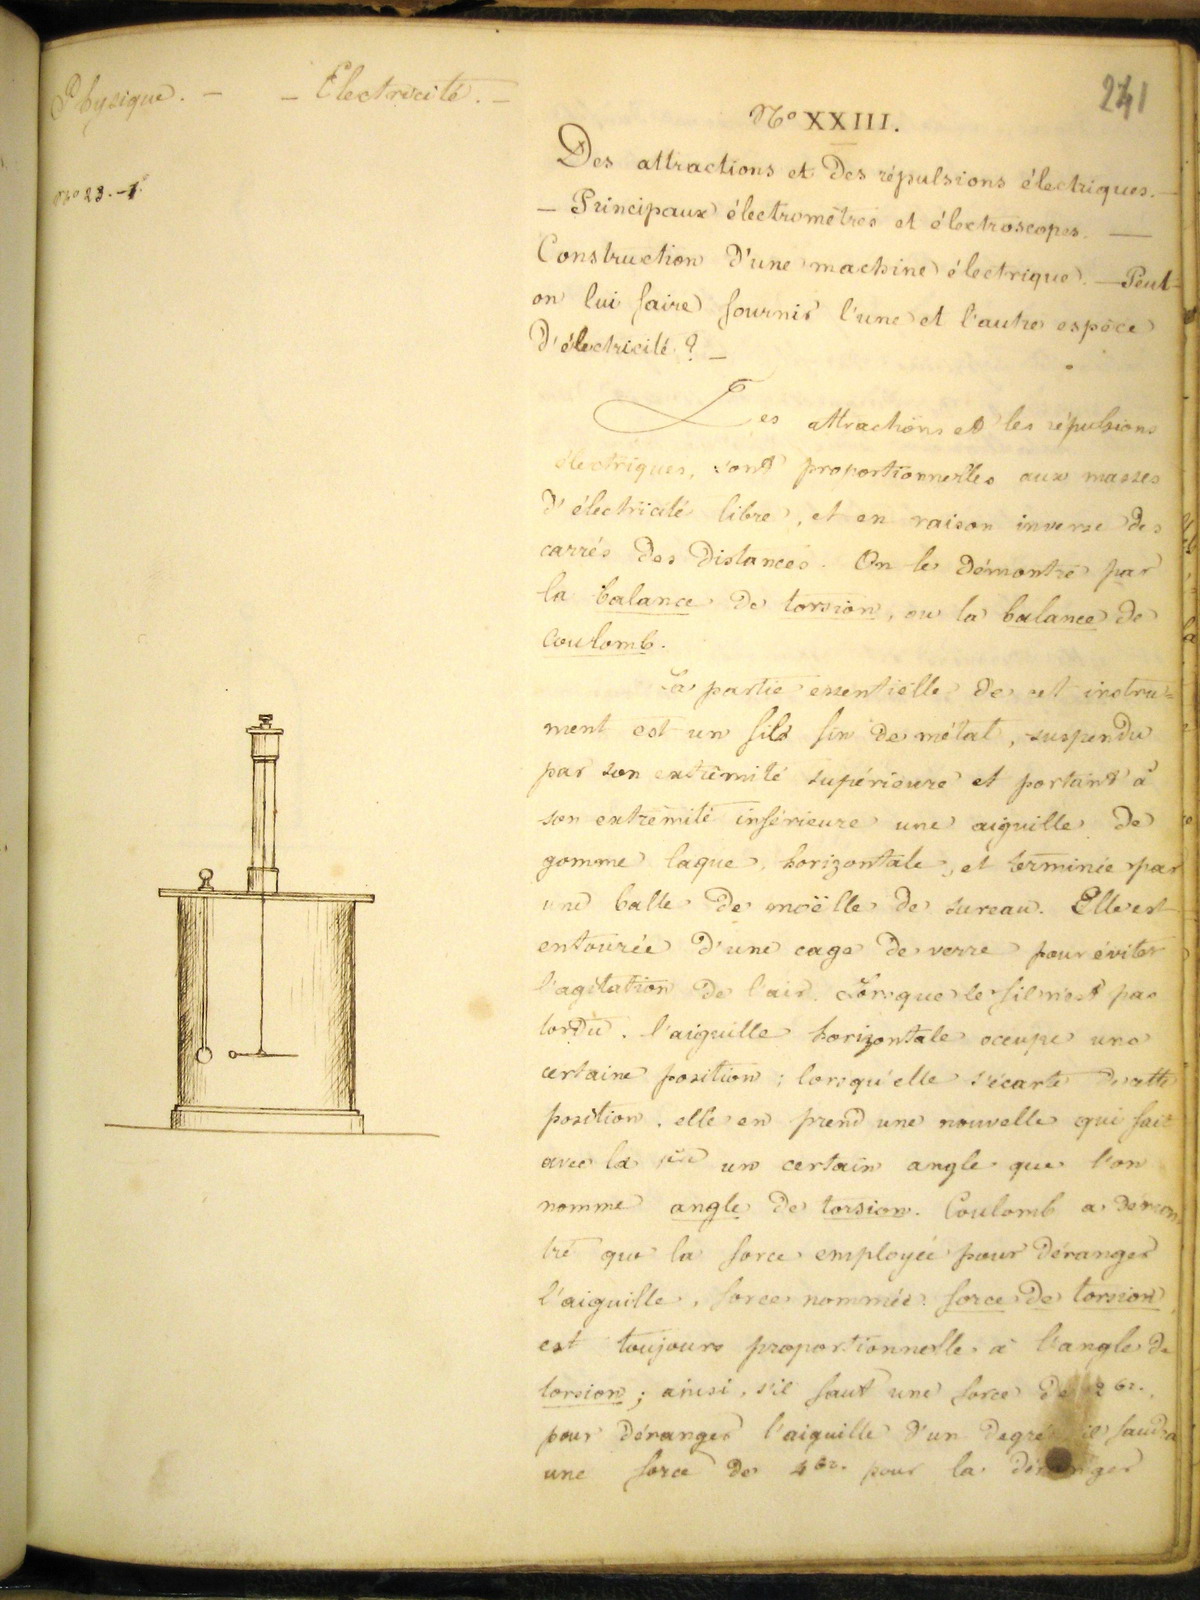 Physique. — — Electricité. —
241
N.º 23. - 1.º
Nº XXIII.
Des attractions et des répulsions électriques. —
— Principaux électromètres et électroscopes. —
Construction d'une machine électrique. — Peut-
on lui faire fournir l'une et l'autre espèce
d'électricité ? —
Les attractions et les répulsions
électriques, sont proportionnelles aux masses
d'électricité libre, et en raison inverse des
carrés des distances. On le démontre par
la balance de torsion, ou la balance de
Coulomb.
La partie essentielle de cet instru=
ment est un fil fin de métal, suspendu
par son extrémité supérieure et portant à
son extrémité inférieure une aiguille de
gomme laque, horizontale, et terminée par
une balle de moëlle de sureau. Elle est
entourée d'une cage de verre pour éviter
l'agitation de l'air. Lorsque le fil n'est pas
tordu, l'aiguille horizontale occupe une
certaine position ; lorsqu'elle s'écarte de cette
position, elle en prend une nouvelle qui fait
avec la 1ère un certain angle que l'on
nomme angle de torsion. Coulomb a démon
tré que la force employée pour déranger
l'aiguille, force nommée force de torsion,
est toujours proportionnelle à l'angle de
torsion ; ainsi, s'il faut une force de 2 gr.
pour déranger l'aiguille d'un degré il faudra
une force de 4 gr. pour la déranger